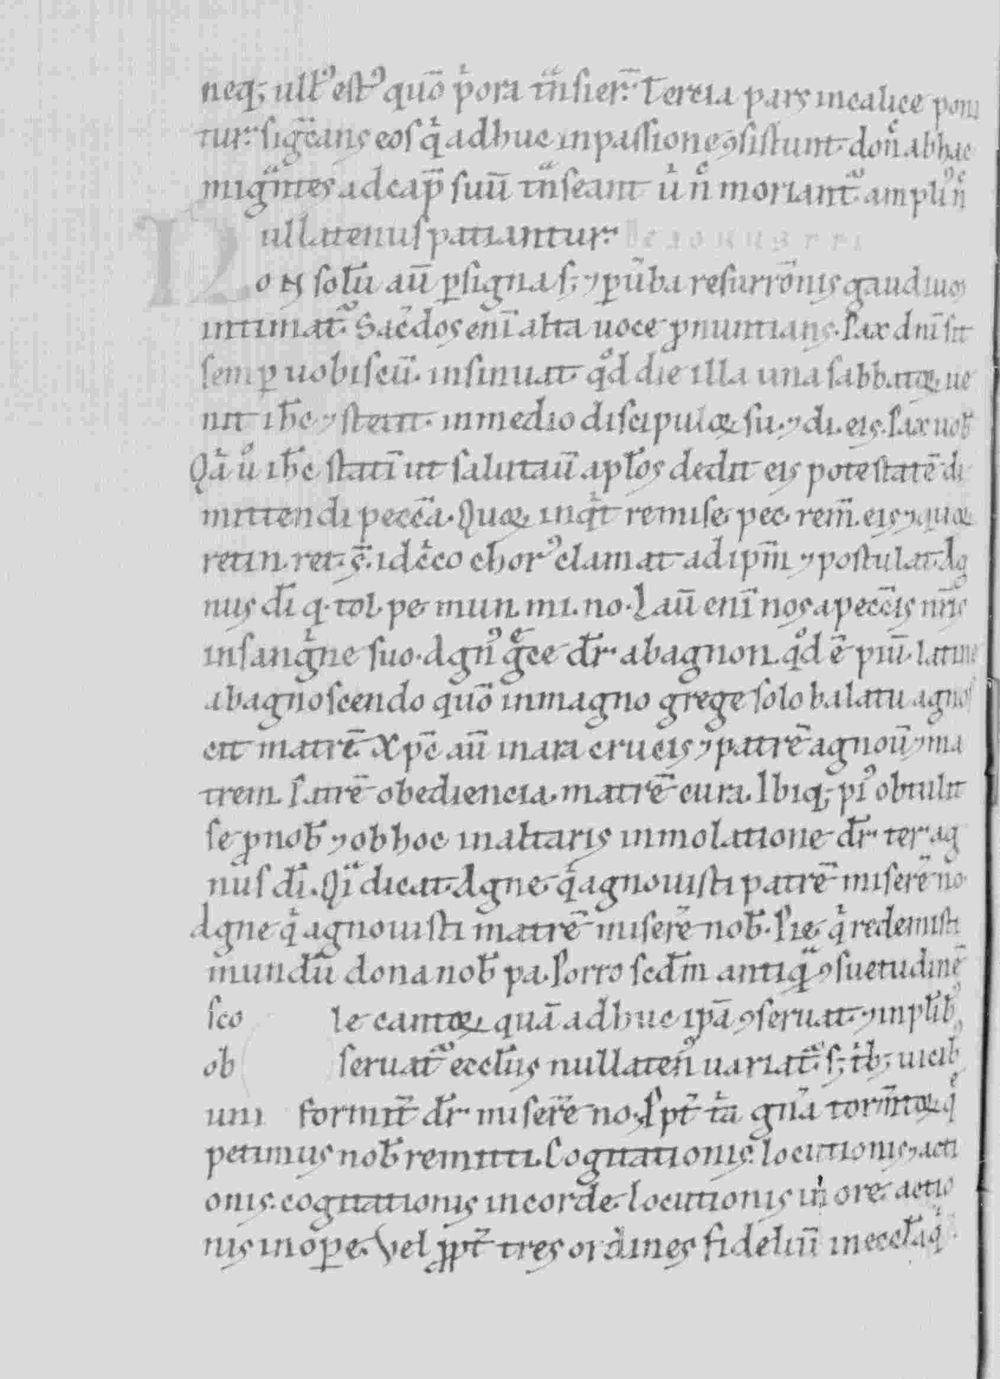 neq; ull' est' quō p̄ora t̄nsier̄. Tercia pars incalice poni
tur. sig̅cans eos q̇ adhuc inpassione ꝯsistunt. don̄ abhac
mig̅ntes adcap̄ suū t̄nseant ů n̄ moriant̄ ampli' n̄
ullatenus patiantur.
oN solū aū ꝑsigna s; ⁊ ꝑ ūba resurrōnis gaudiuꝫ
intimat̄. Sac̄dos enī alta uoce ꝓnuntians. Pax dnī sit
semꝑ uobiscū. insinuat qd̊ die illa una sabbatoꝝ ue
nit ih̄c ⁊ stetit. inmedio discipuloꝝ su. ⁊ di. eis. Pax uob̄
Q̇ā ů ih̄c statī ut salutaū apl̄os dedit eis potestatē di
mittendi pecc̄a. Quoꝝ inq̇t remise. pec. rem̄. eis ⁊ quoꝝ
retin. ret. s̄. id̊co chor' clamat ad ipm̄ ⁊ postulat. Ag
nus dī q. tol. pe. mun. mi. no. Lau̅ enī nos apecc̄is nr̄is
insang̊ne suo. Agn' g̊ce dr̄ abagnon. qd̊ ē piū. latine
abagnoscendo quō inmagno grege solo balatu agnos
cit matrē. Xpc̄ aū inara crucis ⁊ patrē agnoū ⁊ ma
trem. Patrē obediencia. matrē cura. Ibiq; pi' obtulit
se ꝓnob̄ ⁊ obhoc inaltaris inmolatione dr̄ ter ag
nus dī. Qī dicat. Agne q̇ agnouisti patrē miserē no.
Agne q̇ agnouisti matrē miserē nob̄. Pie q̇ redemisti
mundū dona nob̄ pa. Porro scdm̄ antiq̄ ꝯsuetudinē
sco le cantoꝝ quā adhuc ipā ꝯseruat. ⁊ inplib'
ob seruat̄ eccl̄iis nullaten' uariat̄. s; t̄b; uicib'
uni formit̄ dr̄ miserē no. Ppt̄ t̄a gn̄a torm̄toꝝ q̄
petimus nob̄ remitti. Cogitationis. locutionis ⁊ acti
onis. cogitationis incorde. locutionis in ore. actio
nis inoꝑe. Vel ꝓpt̄ tres ordines fideliū ineccl̄a q̇